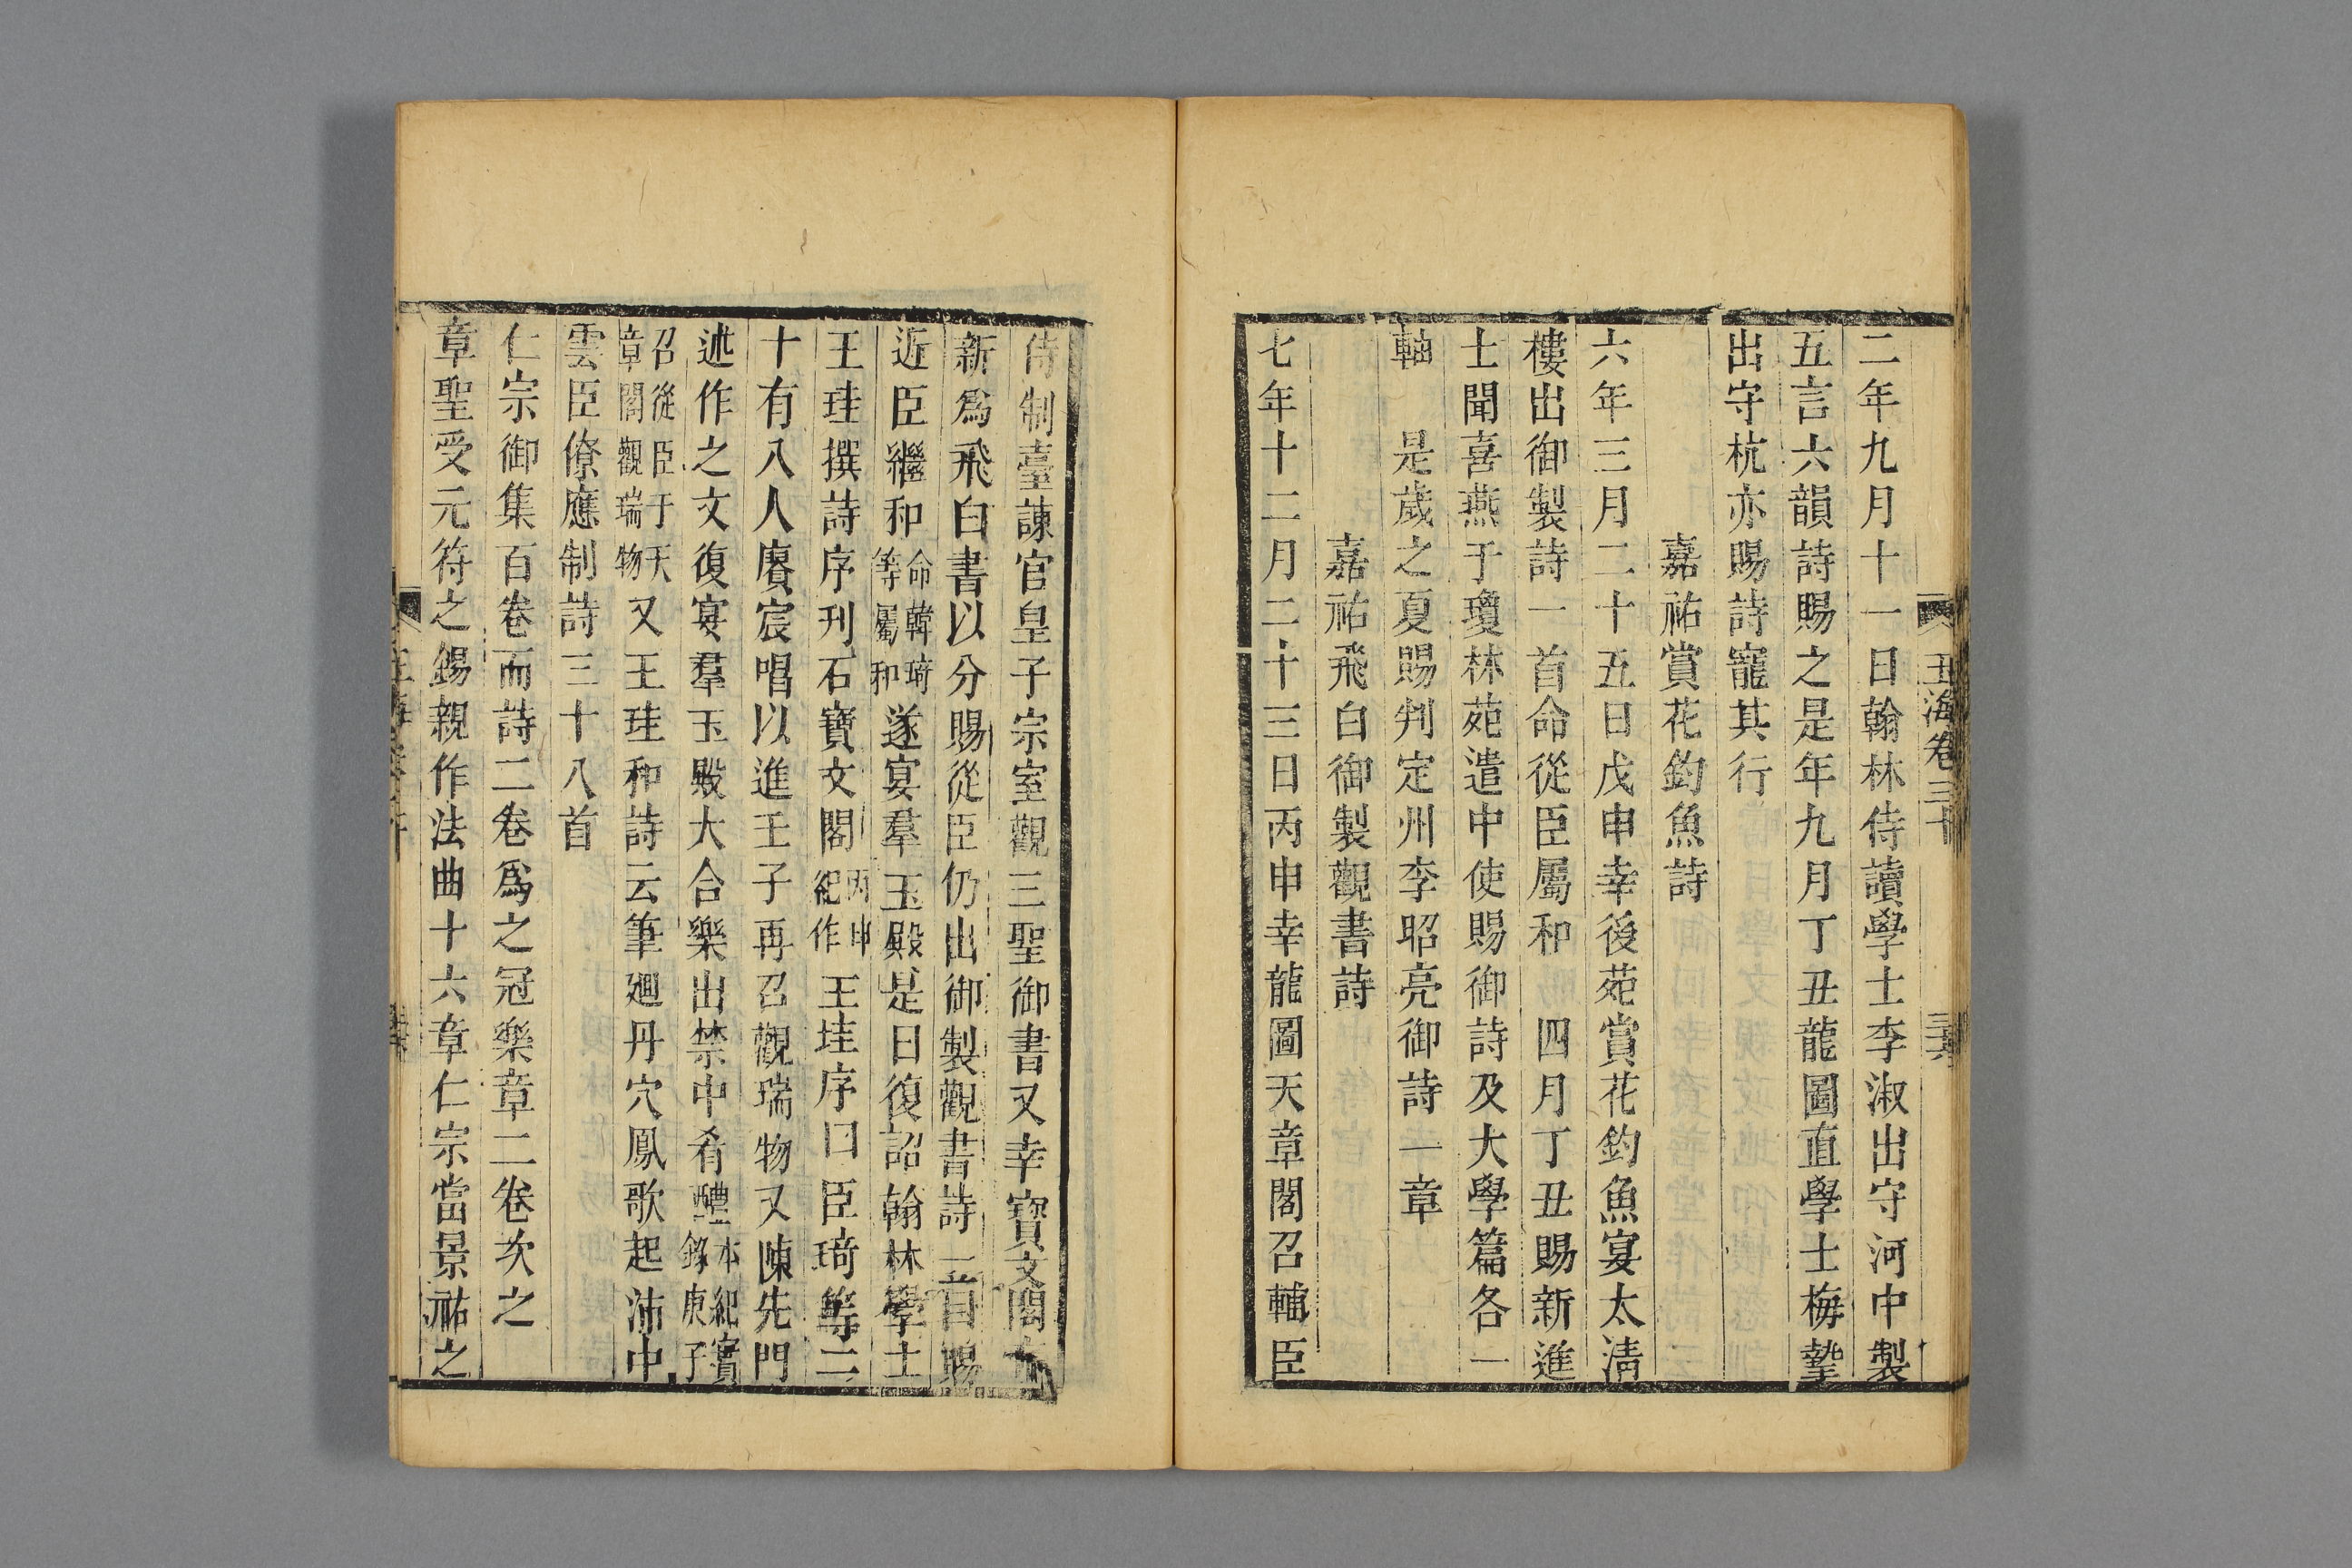 玉海卷三十
二年九月十一日翰林侍讀學士李淑出守河中製
五言六韻詩賜之是年九月丁丑龍圖直學士梅摯
出守杭亦賜詩寵其行
嘉祐賞花釣魚詩
六年三月二十五日戊申幸後苑賞花釣魚宴太清
樓出御製詩一首命從臣屬和　四月丁丑賜新進
士聞喜燕于瓊林苑遣中使賜御詩及大學篇各一
軸　是歲之夏賜判定州李昭亮御詩一章
嘉祐飛白御製觀書詩
七年十二月二十三日丙申幸龍圖天章閣召輔臣
侍制臺諫官皇子宗室觀三聖御書又幸寶文閣
新爲飛白書以分賜從臣仍出御製觀書詩 賜
近臣繼和命韓琦等屬和遂宴羣玉殿是日復詔翰林學士
王珪撰詩序刊石寶文閣丙申紀作王珪序曰臣琦等二
十有八人賡宸唱以進壬子再召觀瑞物又陳先門
述作之文復宴羣玉殿大合樂出禁中肴醴本紀實錄庚子
召從臣于天章閣觀瑞物又王珪和詩云筆廻丹穴鳳歌起沛中
雲臣僚應制詩三十八首
仁宗御集百卷而詩二卷爲之冠樂章二卷次之
章聖受元符之錫親作法曲十六章仁宗當景祐之